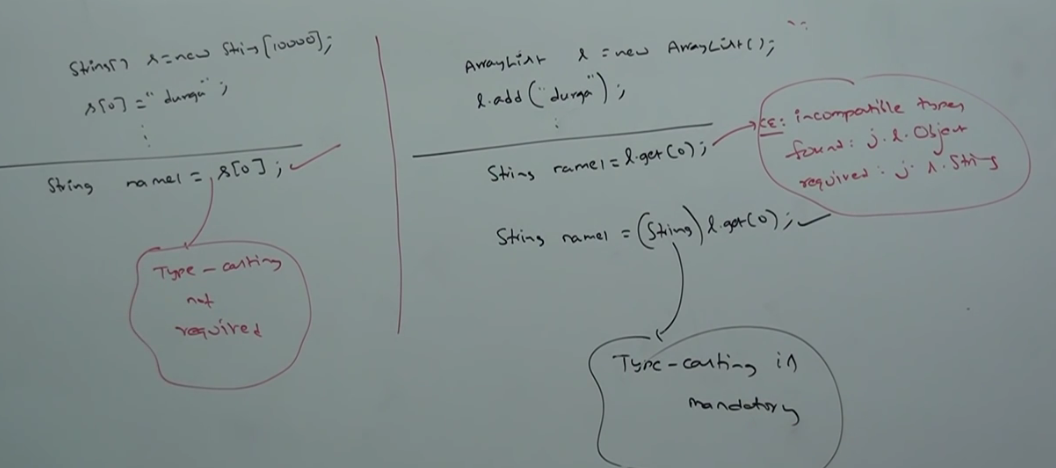 String[] s=new String[10000];
s[0]="durga";
String name1 = s[0];
Type-casting
not
required
ArrayList l =new ArrayList();
l.add("durga");
String name1=l.get(0);
CE: incompatible types
found: j.l.Object
required: j.l.String
String name1 =(String)l.get(0);
Type-casting is
mandatory